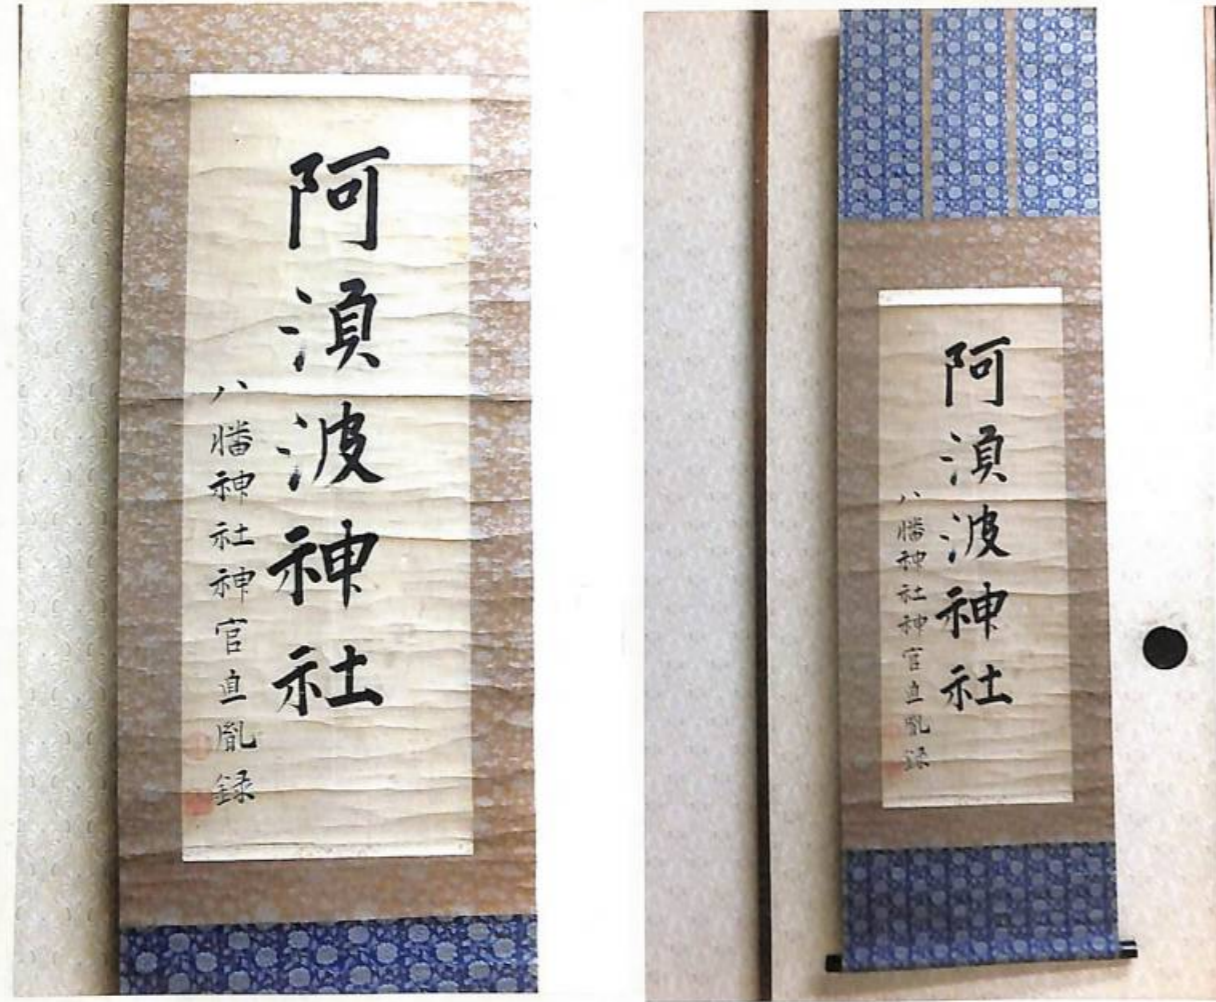 阿湏波神社
八幡神社神官直胤録
阿湏波神社
八幡神社神官直胤録